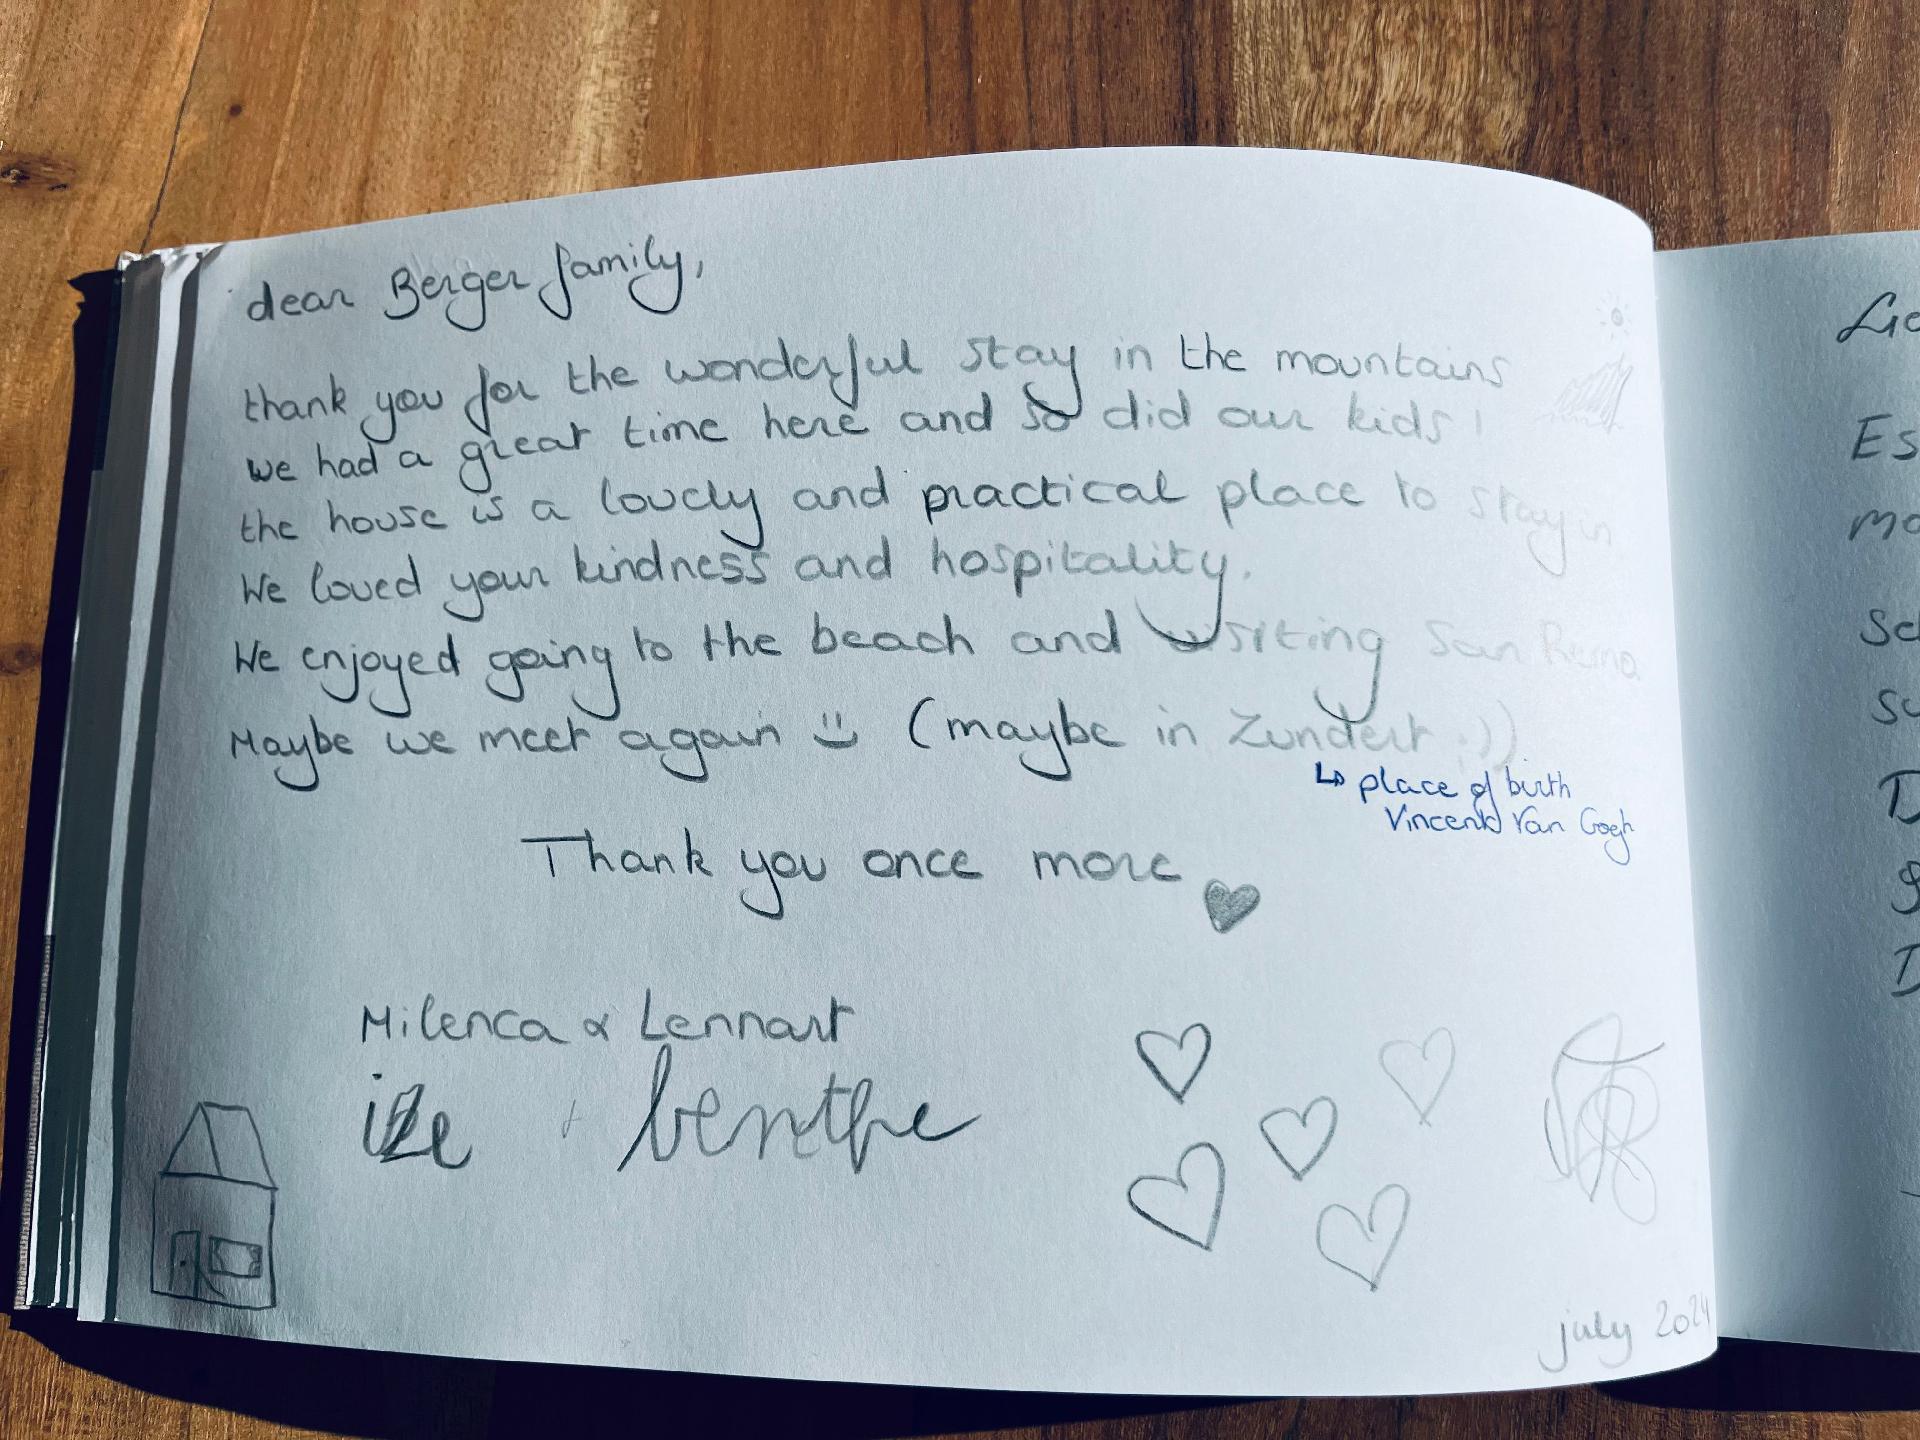 dear Berger family,
thank you for the wonderful stay in the mountains
we had a great time here and so did our kids!
the house is a lovely and practical place to stay in
We loved your kindness and hospitality.
We enjoyed going to the beach and visiting San Remo.
Maybe we meet again :) (maybe in Zundert ;))
↳ place of birth
Vincent Van Gogh
Thank you once more ♥
Milenca & Lennart
+ benthe
july 2024
Es